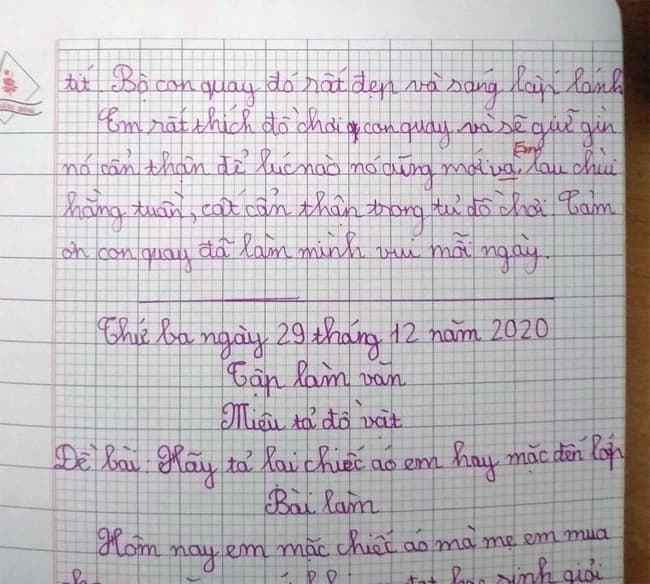 tít. Bộ con quay đó rất đẹp và sáng lấp lánh
Em rất thích đồ chơi con quay và sẽ giữ gìn
nó cẩn thận để lúc nào nó cũng mới và Em lau chùi
hằng tuần, cất cẩn thận trong tủ đồ chơi. Cảm
ơn con quay đã làm mình vui mỗi ngày.
Thứ ba ngày 29 tháng 12 năm 2020
Tập làm văn
Miêu tả đồ vật
Đề bài: Hãy tả lại chiếc áo em hay mặc đến lớp
Bài làm
Hôm nay em mặc chiếc áo mà mẹ em mua
học sinh giỏi